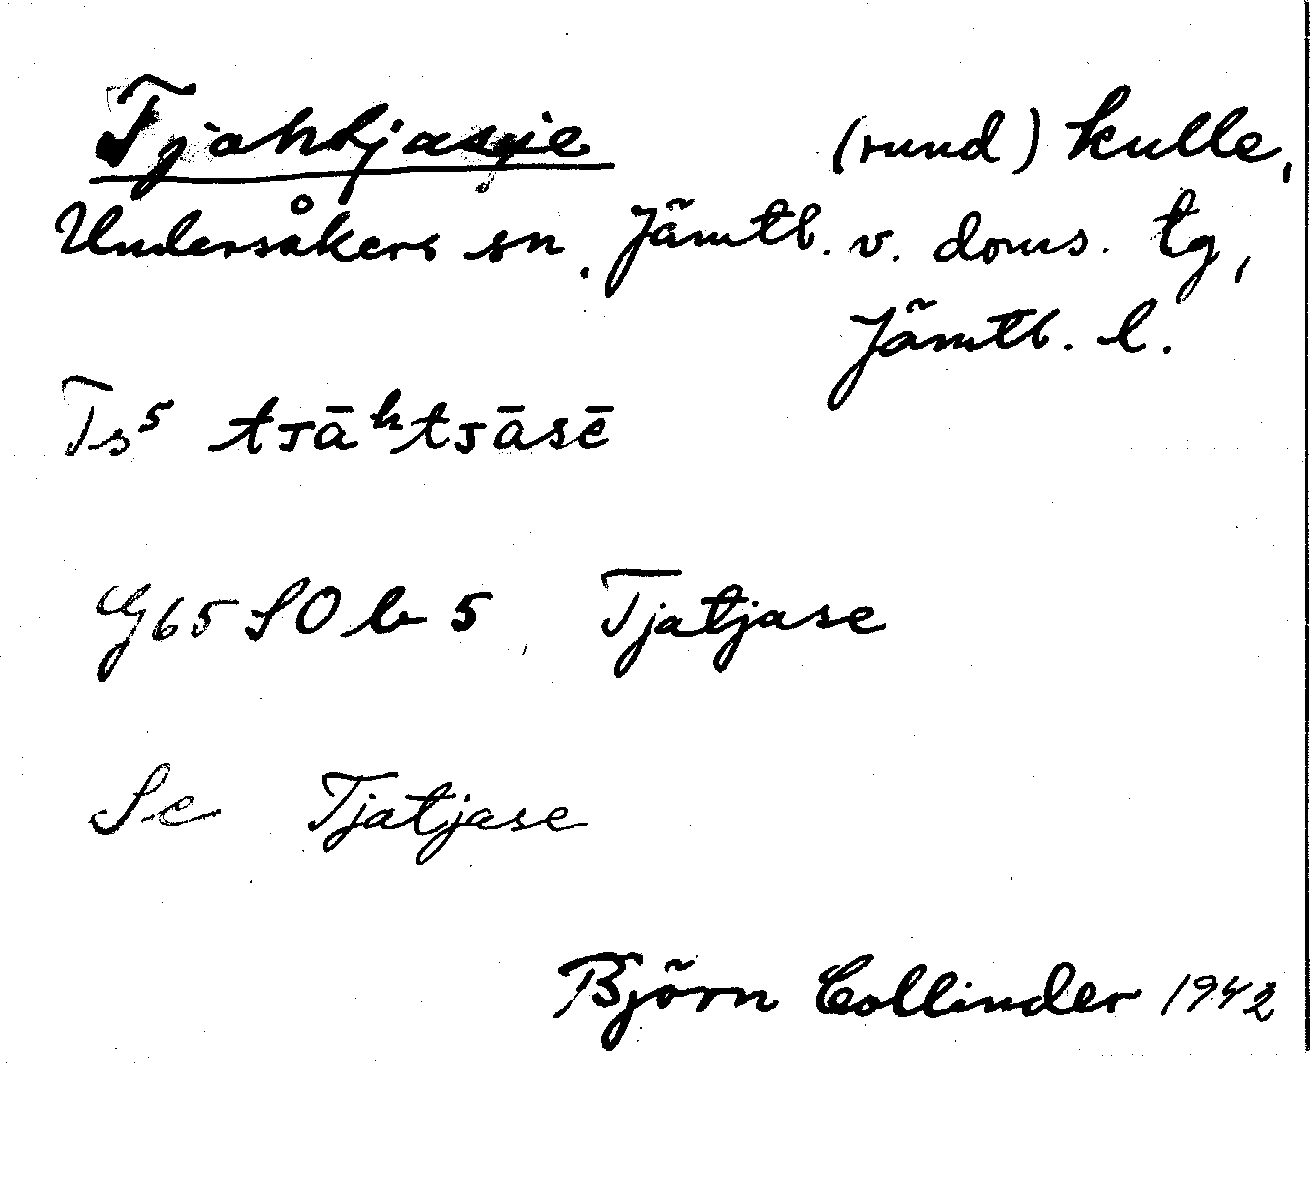 Tjahtjasjie (rund) kulle,
Undersåkers sn, Jämtl. v. doms. tg,
Jämtl. l.
Ts⁵ tᴊāʰtᴊāsē
G65 SO b 5, Tjatjase
Sc Tjatjase
Björn Collinder 1942